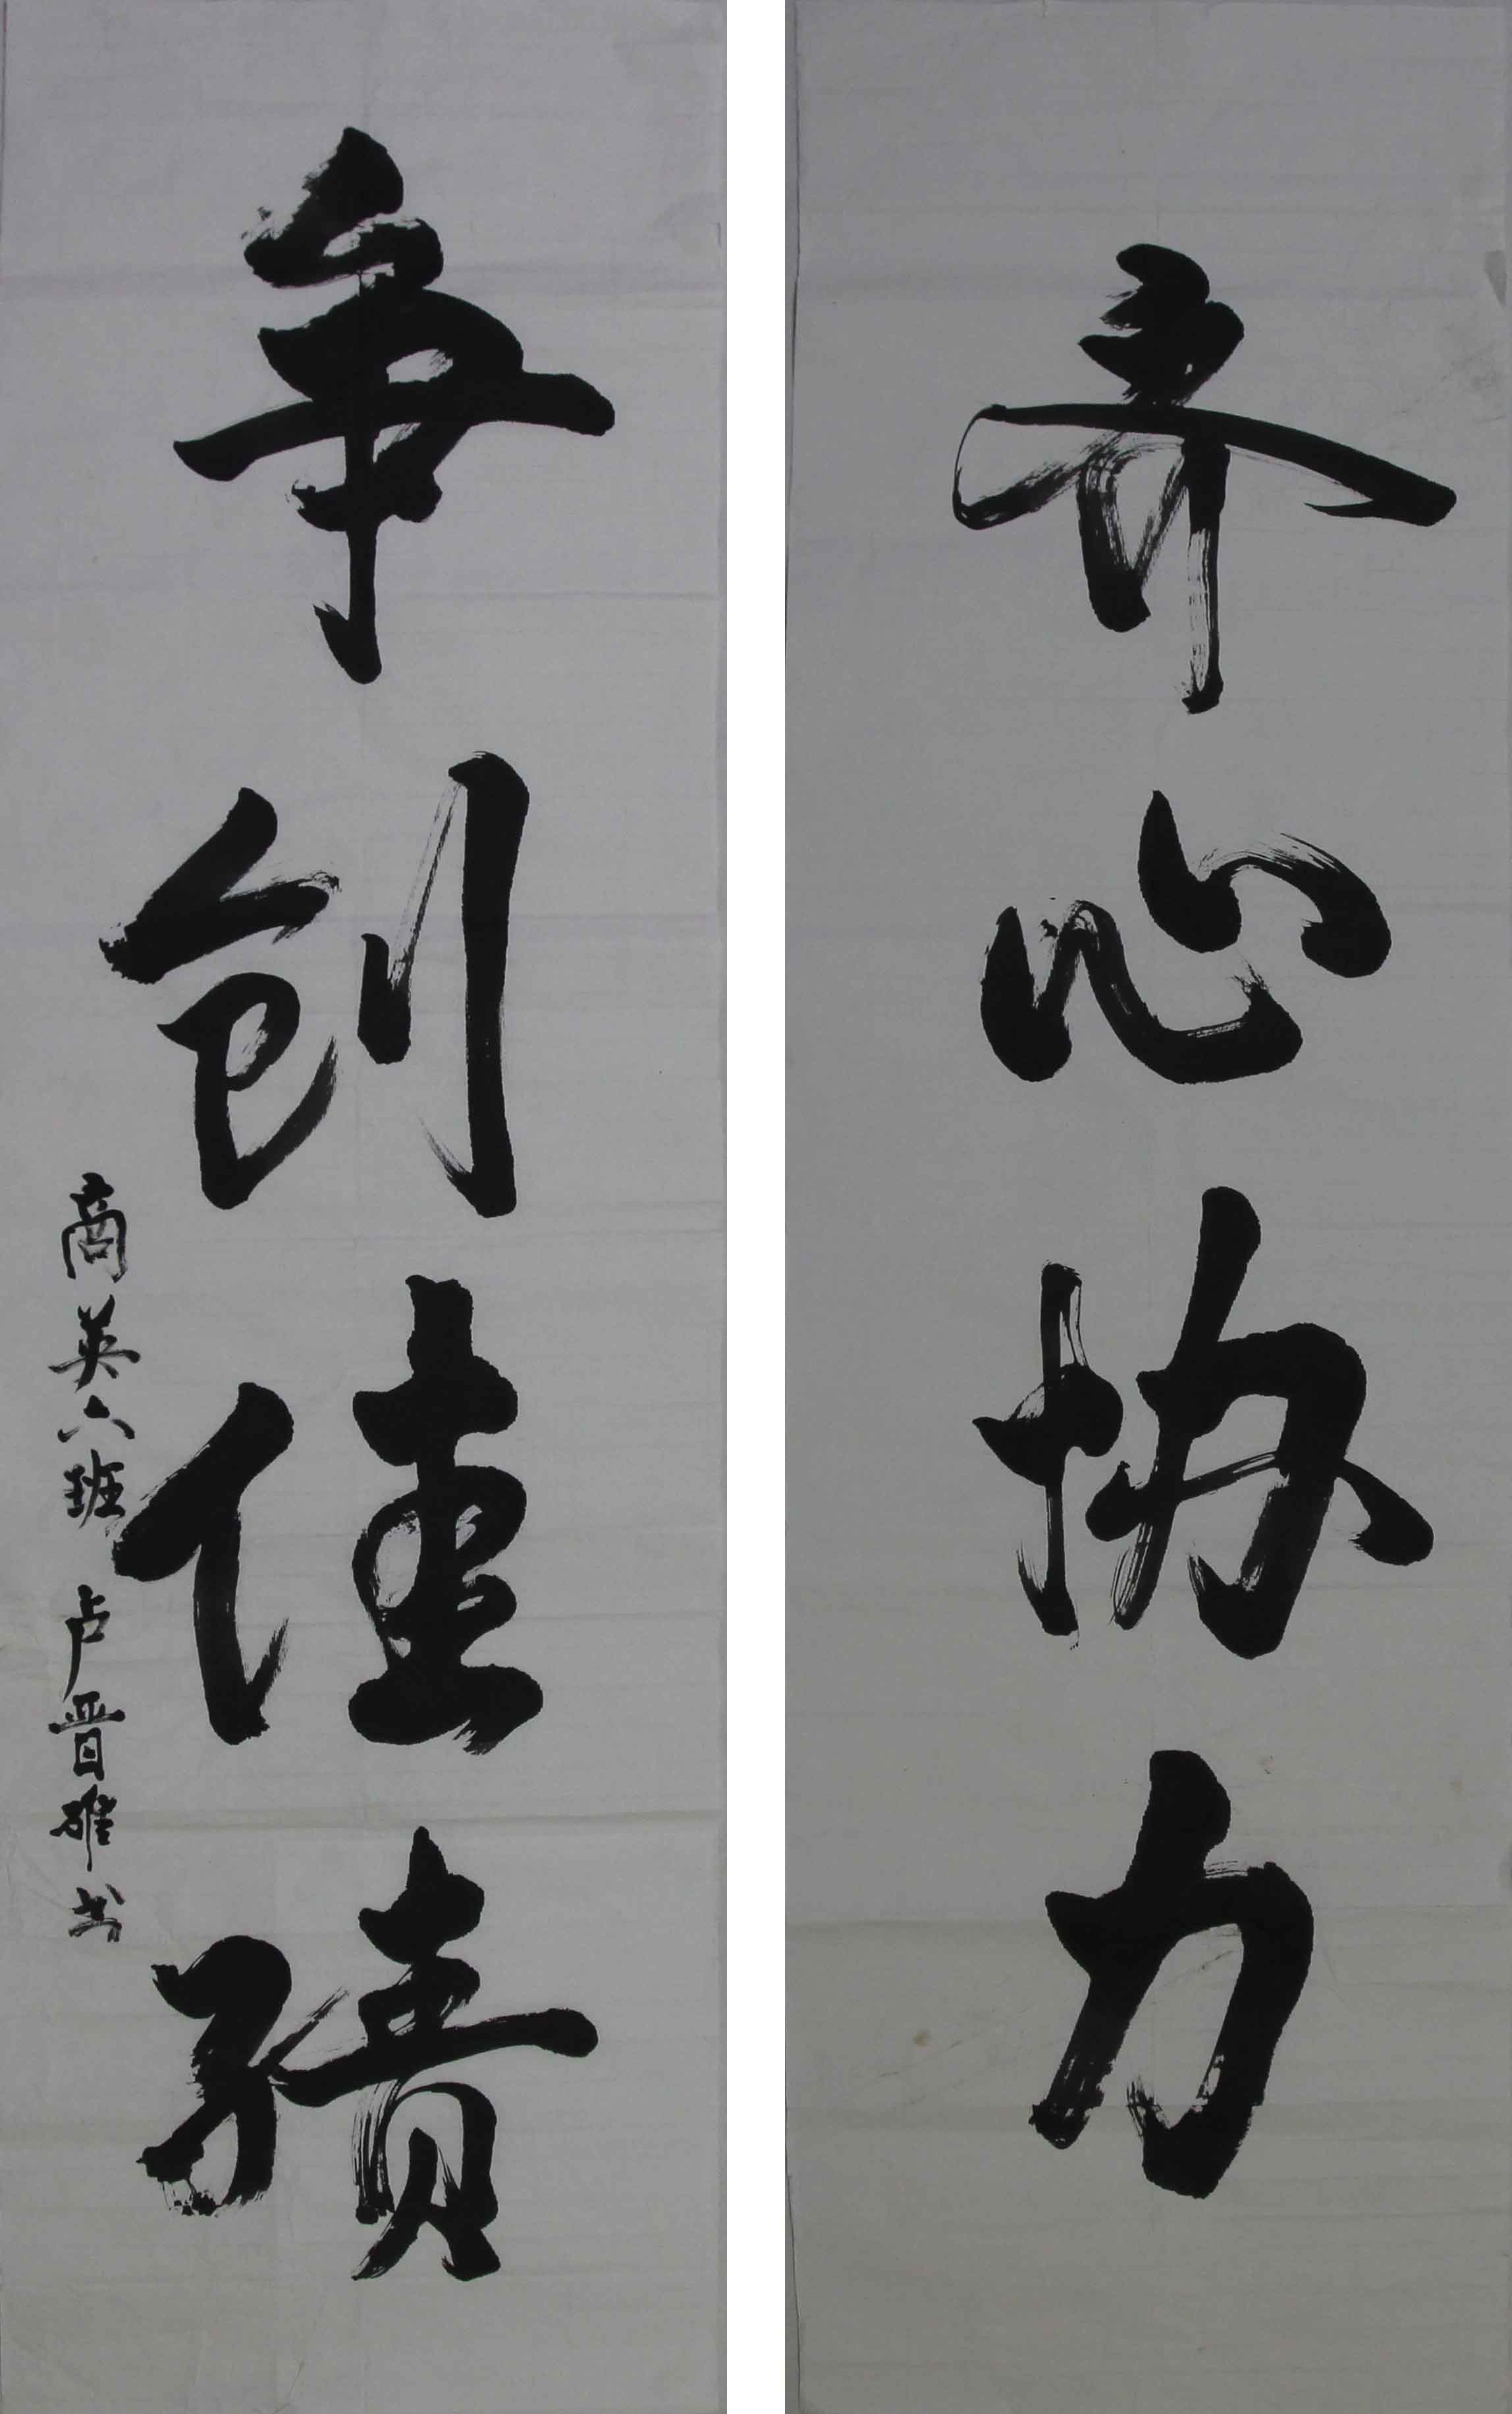 齐心协力
争创佳绩
商英六班 卢晋雄书